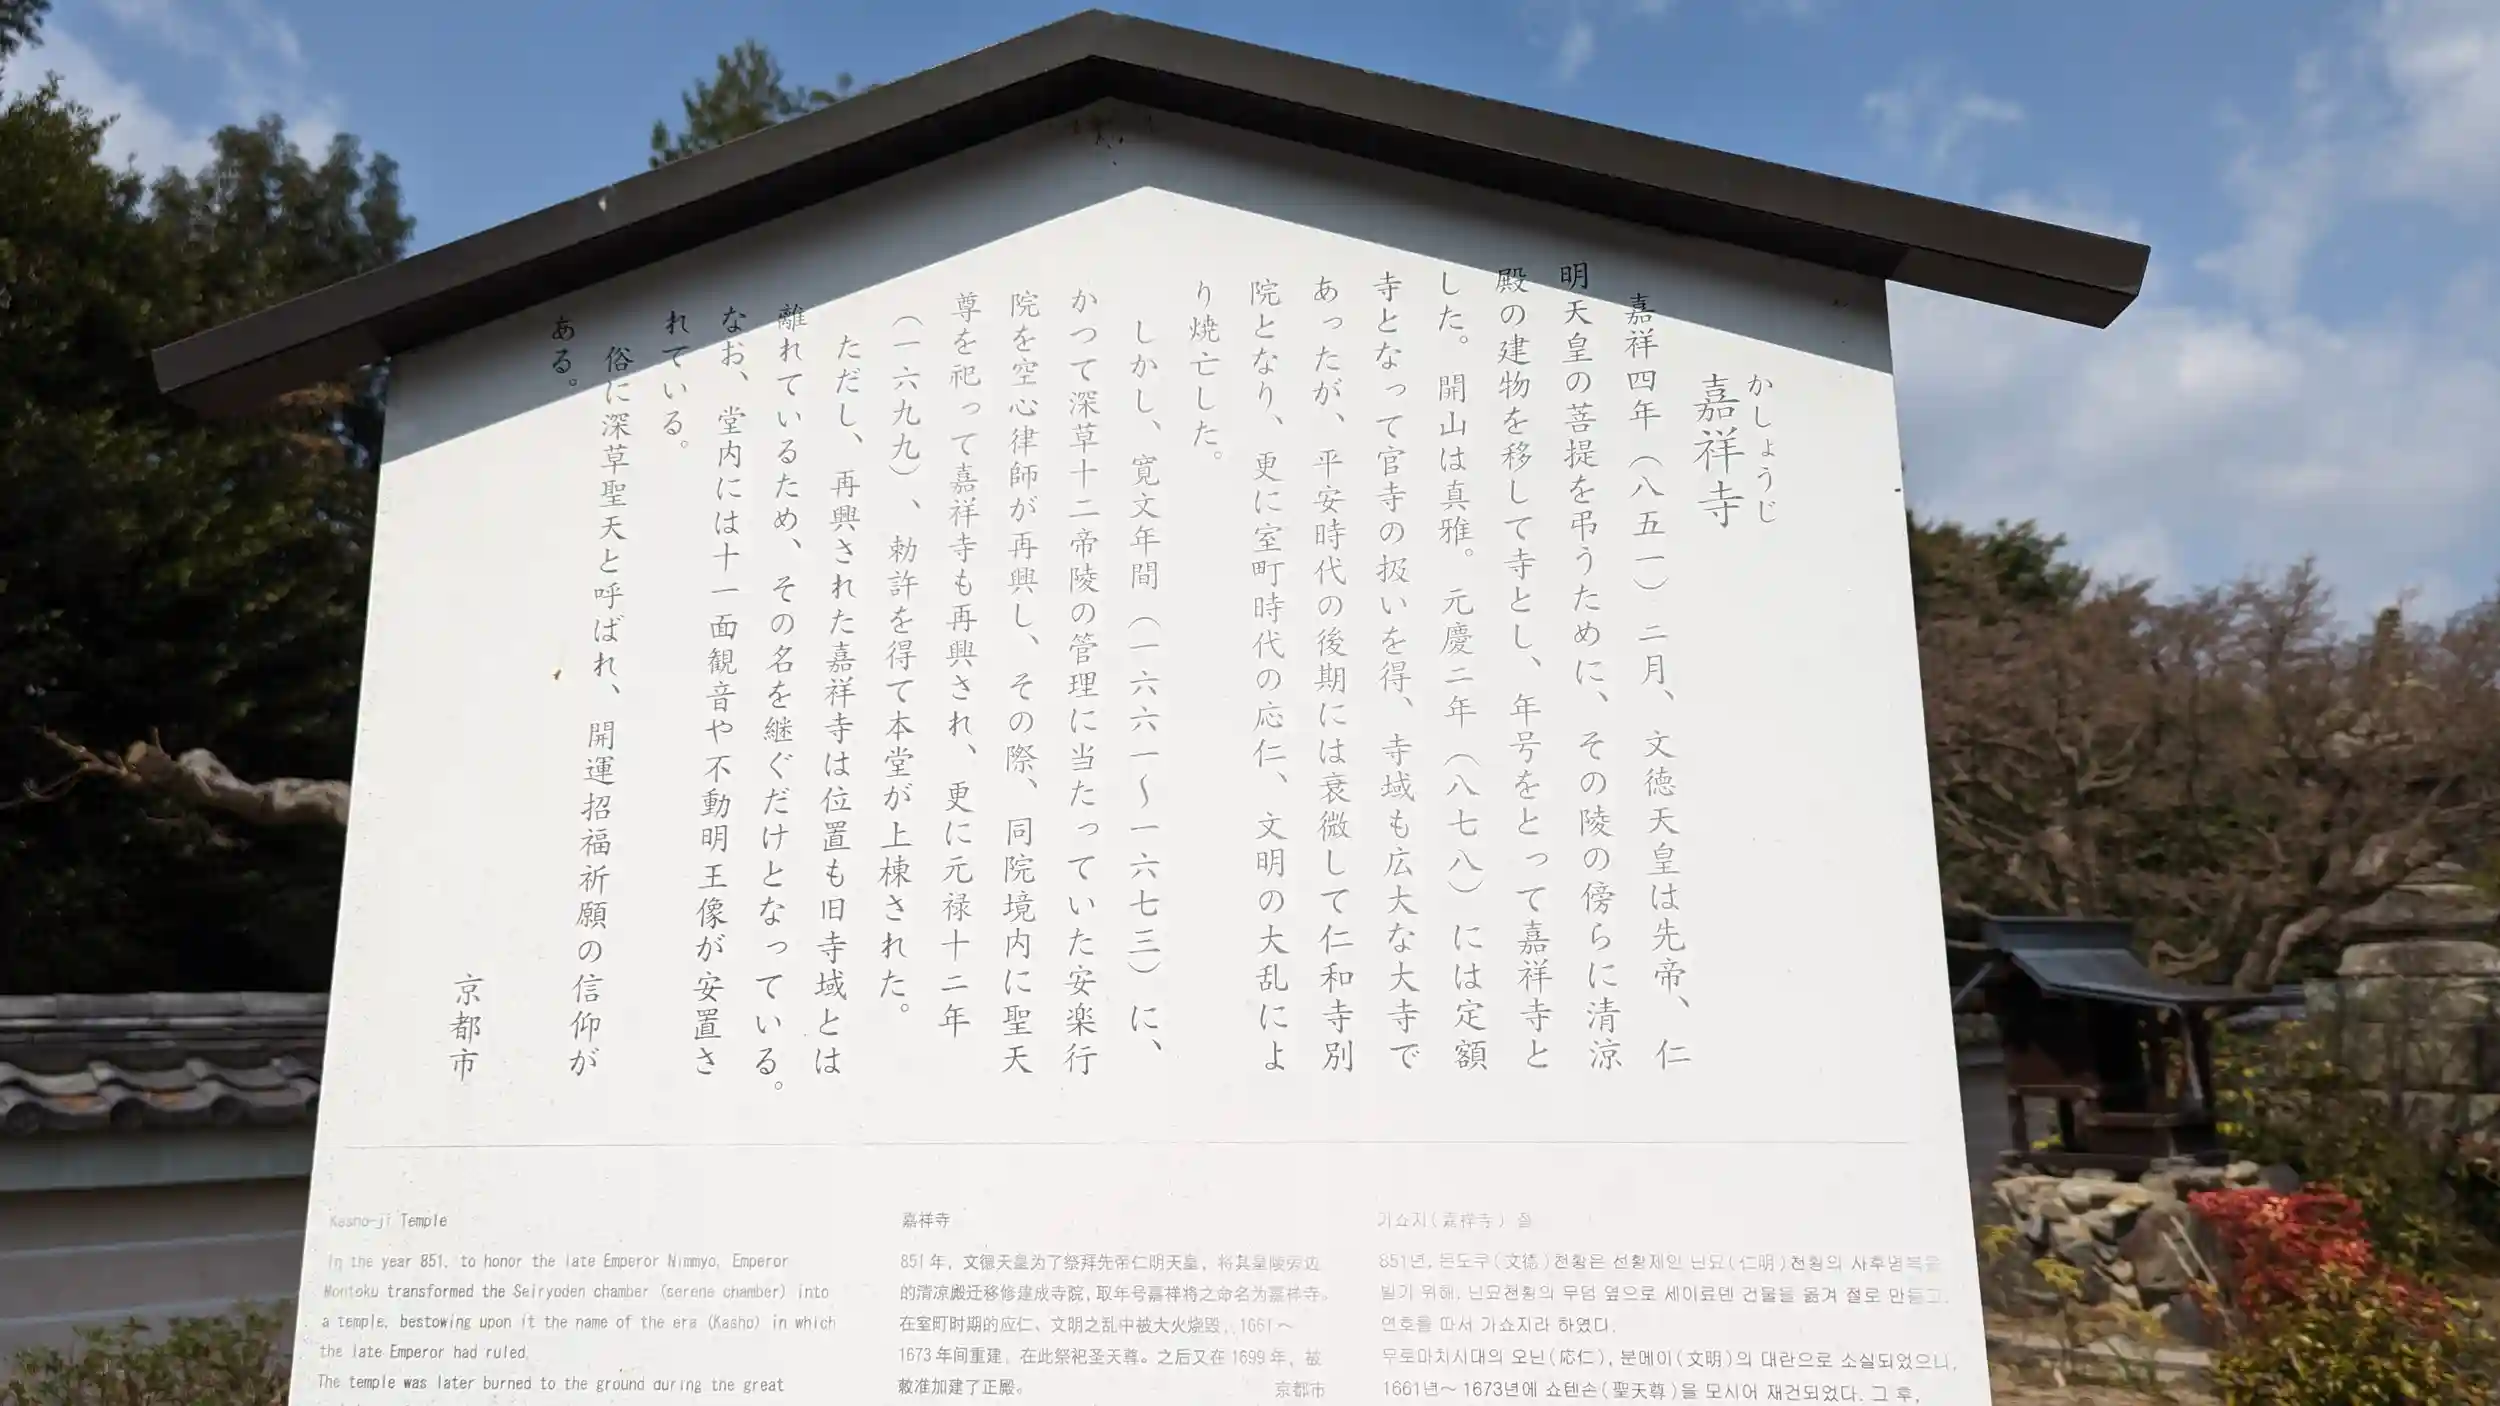 かしょうじ
嘉祥寺
嘉祥四年（八五一）二月、文徳天皇は先帝、仁
明天皇の菩提を弔うために、その陵の傍らに清涼
殿の建物を移して寺とし、年号をとって嘉祥寺と
した。開山は真雅。元慶二年（八七八）には定額
寺となって官寺の扱いを得、寺域も広大な大寺で
あったが、平安時代の後期には衰微して仁和寺別
院となり、更に室町時代の応仁、文明の大乱によ
り焼亡した。
しかし、寛文年間（一六六一〜一六七三）に、
かつて深草十二帝陵の管理に当たっていた安楽行
院を空心律師が再興し、その際、同院境内に聖天
尊を祀って嘉祥寺も再興され、更に元禄十二年
（一六九九）、勅許を得て本堂が上棟された。
ただし、再興された嘉祥寺は位置も旧寺域とは
離れているため、その名を継ぐだけとなっている。
なお、堂内には十一面観音や不動明王像が安置さ
れている。
俗に深草聖天と呼ばれ、開運招福祈願の信仰が
ある。
京都市
Kasho-ji Temple
In the year 851, to honor the late Emperor Nimmyo, Emperor
Montoku transformed the Seiryoden chamber (serene chamber) into
a temple, bestowing upon it the name of the era (Kasho) in which
the late Emperor had ruled.
The temple was later burned to the ground during the great
嘉祥寺
851年，文德天皇为了祭拜先帝仁明天皇，将其皇陵旁边
的清凉殿迁移修建成寺院，取年号嘉祥将之命名为嘉祥寺。
在室町时期的应仁、文明之乱中被大火烧毁，1661～
1673年间重建，在此祭祀圣天尊。之后又在1699年，被
敕准加建了正殿。
京都市
가쇼지(嘉祥寺) 절
851년, 몬도쿠(文徳)천황은 선황제인 닌묘(仁明)천황의 사후명복을
빌기 위해, 닌묘천황의 무덤 옆으로 세이료덴 건물을 옮겨 절로 만들고,
연호를 따서 가쇼지라 하였다.
무로마치시대의 오닌(応仁), 분메이(文明)의 대란으로 소실되었으니,
1661년～1673년에 쇼텐손(聖天尊)을 모시어 재건되었다. 그 후,